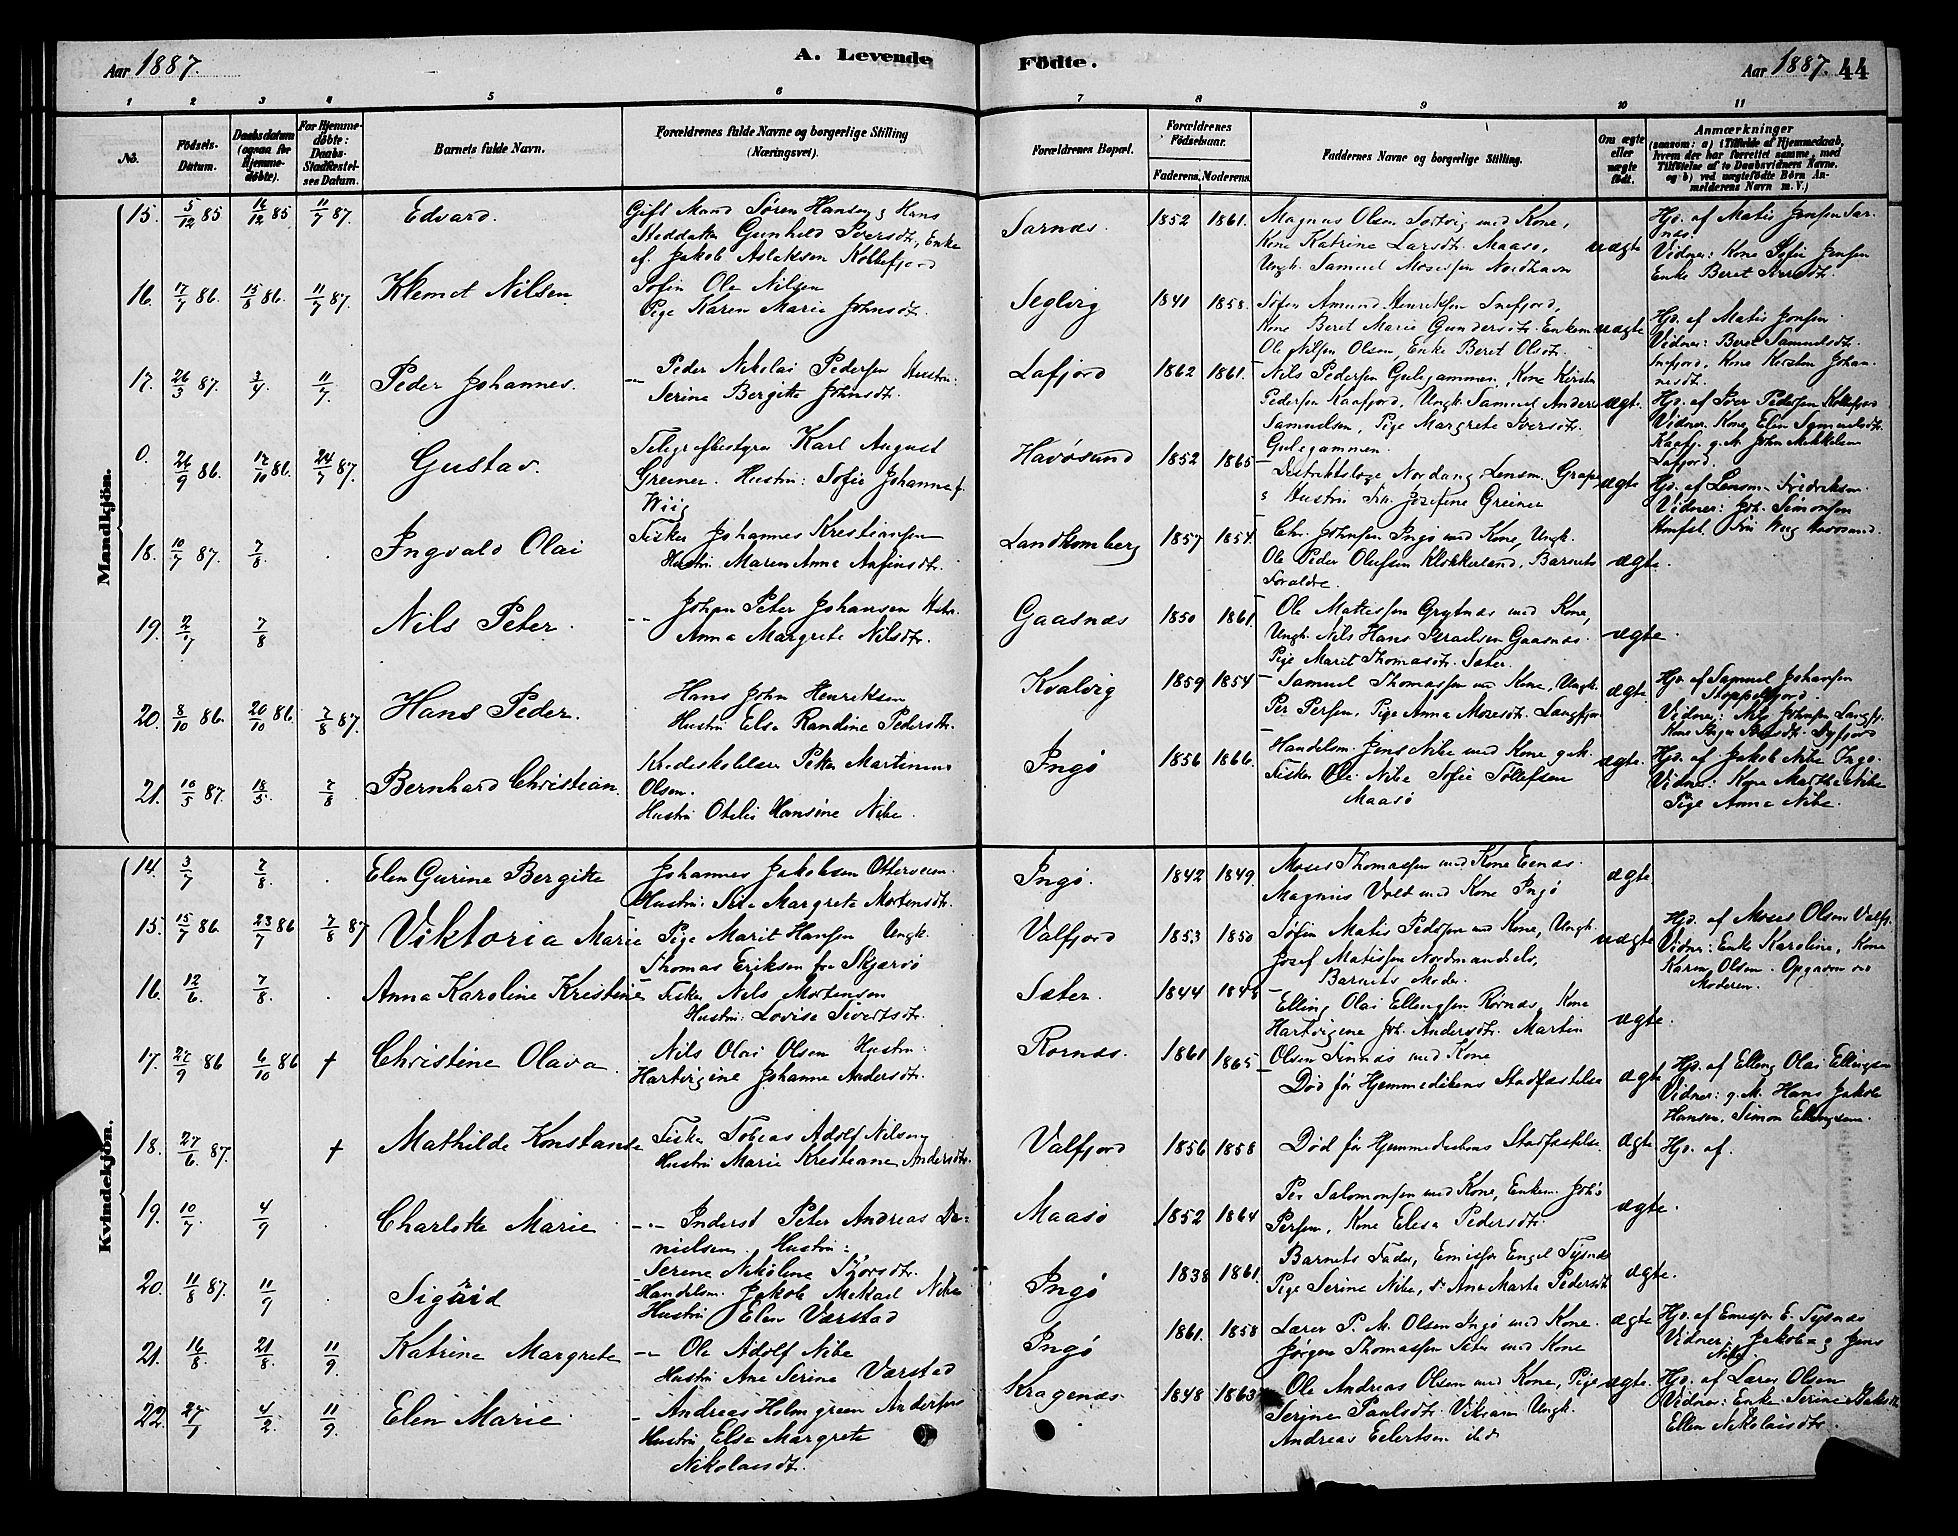 Aar 1887.
A. Levende Födte.
Aar 1887. 44
1 2 3 4 5 6 7 8 9 10 11
No.
Födsels-Datum.
Daabsdatum (ogsaa for Hjemme-döbte).
For Hjemme-döbte: Daabs-Stadfæstel-ses Datum.
Barnets fulde Navn.
Forældrenes fulde Navne og borgerlige Stilling (Næringsvei).
Forældrenes Bopæl.
Forældrenes Födselsaar.
Faderens. Moderens.
Faddernes Navne og borgerlige Stilling.
Om ægte eller uægte födt.
Anmærkninger
(saasom: a) i Tilfælde af Hjemmedaab, hvem der har forrettet samme, med Tilföielse af to Daabsvidners Navne, og b) ved uægtefödte Börn Anmelderens Navn m. V.)
Mandkjön.
15. 5/12 85 14/12 85 11/7 87. Edvard.
Gift Mand Søren Hansen, Hans
Steddatter Gunhild Iversdtr, Enke
af Jakob Aslaksen Kollefjord
Sarnæs. 1852 1861.
Magnus Olsen Sortvig med Kone,
Kone Katrine Larsdtr. Maasø,
Ungk. Samuel Mosessen Nordhavn
uægte
Hjd. af Matis Jensen Sar-
næs.
Vidner: Kone Sofie Jensen
Enke Beret
16. 17/7 86. 15/8 86. 11/7 87. Klemet Nilsen
Sofin Ole Nilsen
Pige Karen Marie Johnsdtr.
Seglvig 1841 1858.
Søfin Amund Henriksen Snefjord,
Kone Beret Marie Gundersdtr. Enkem
Ole Nilsen Olsen, Enke Beret Olsdtr.
uægte
Hjd. af Matis Jensen
Vidner: Beret Samuelsdtr.
Snefjord, Kone Kirsten Johan-
nesdtr.
17. 26/3 87. 3/4 11/7 Peder Johannes.
-- Peder Nikolai Pedersen Hustru:
Serine Bergitte Johnsdtr.
Lafjord 1862 1861.
Nils Pedersen Gulgammen, Kone Kirsten
Pedersen Kaafjord, Ungk. Samuel Anders
Samuelsen, Pige Margrete Iversdtr.
Gulegammen.
ægte.
Hjd. af Iver Pedersen Kollefjord
Vidner: Kone Elen Samuelsdtr.
Kaafj. g. M. John Mikkelsen
Lafjord.
0. 26/9 86. 17/10 86. 24/7 87. Gustav.
Telegrafbestyrer Karl August
Greiner. Hustru: Sofie Johanne f.
Wiig
Havøsund 1852 1865
Distriktslæge Nordang Lensm.
s Hustru Frk. Josefine Greiner
ægte
Hjd. af Lensm. Fredriksen
Vidner: Joh. Simonsen
18. 10/7 87. 7/8 . Ingvald Olai
Fisker Johannes Kristiansen
Hustru Maren Anna Anfinsdtr.
Landkomberg 1857 1854.
Chr. Johnsen Ingø med Kone, Ungk.
Ole Peder Olufsen Klokkerland, Barnets
Foraldre.
ægte.
19. 2/7 7/8 Nils Peter.
-- Johan Peter Johansen Hustru.
Anna Margrete Nilsdtr.
Gaasnæs 1850 1861.
Ole Mathisen Grytnæs med Kone,
Ungk. Nils Hans Israelsen Gaasnæs.
Pige Marit Thomasdtr. Sæter.
ægte.
20. 8/10 86. 20/10 86. 7/8 87. Hans Peder.
Hans John Henriksen
Hustru Else Randine Pedersdtr.
Kvalvig 1859 1854
Samuel Thomassen med Kone, Ungk.
Per Persen, Pige Anna Mosesdtr. Langfjor
ægte
Hjd. af Samuel Johansen
Stoppelfjord.
Vidner: Nils Johnsen Langfj.
21. 16/5 87. 18/5 7/8 Bernhard Christian.
Kredsskolelærer Peter Martinus
Olsen.
Hustru Otelie Hansine Nibe.
Ingø 1856 1866.
Handelsm. Jens Nibe med Kone g. M.
Fisker Ole Nibe Sofie Tollefsen
Maasø
ægte.
Hjd. af Jakob Nibe Ingø.
Vidner: Kone Marthe Nibe
Pige Anna Nibe.
Kvindekjön.
14. 3/7 7/8 . Elen Gurine Bergitte
Johannes Jakobsen Otterveien.
Hustru: Margrete Mortensdtr.
Ingø. 1842 1849.
Moses Thomassen med Kone
Magnus Valt med Kone Ingø
ægte
15. 15/7 86. 23/7 86 7/8 87 Viktoria Marie
Pige Marit Hansen Ungk.
Thomas Eriksen fra Skjærvø
Valfjord 1853 1850
Søfin Matis Pedersen med Kone, Ungk.
Josef Matissen Nordmandselv,
Barnets Moder.
uægte
Hjd. af Moses Olsen Valfj.
Vidner: Enke Karoline, Kone
Karen Olsen. Opgaven ved
Moderen.
16. 12/6. 7/8. . Anna Karoline Kristine
Fisker Nils Mortensen
Hustru: Lovise Sivertsdtr.
Sæter. 1844 1848
Elling Olai Ellingsen Rornæs, Kone
Hartvigine Joh. Andersdtr. Martin
Olsen Finnæs med Kone
ægte.
17. 27/9 86 6/10 86 + Christine Olava
Nils Olai Olsen Hustru:
Hartvigine Johanne Andersdtr.
Rornæs. 1861 1865
Død før Hjemmedåbens Stadfæstelse
ægte
Hjd. af Elling Olai Ellingsen
Vidner: g. M. Hans Jakob
Hansen, Simon Ellingsen.
18. 27/6 87. + Mathilde Konstanse
Fisker Tobias Adolf Nilsen
Hustru Marie Kristiane Andersdtr.
Valfjord 1856 1858
Død før Hjemmedaabens Stadfæstelse.
ægte
Hjd. af.
19. 10/7 4/9 . Charlotte Marie
-- Inderst Peter Andreas Da-
nielsen. Hustru:
Serine Nikoline Sjursdtr.
Maasø 1852 1864
Per Salomonsen med Kone, Enkem. Johs
Persen, Kone Elesa Pedersdtr.
ægte.
20. 11/8 87. 11/9 Sigrid
Handelsm. Jakob Mikael Nibe
Hustru Elen Værstad
Ingø 1838 1861.
Barnets Fader, Emissær Engel Tysnæs
Pige Serine Nibe, do Ane Marta Pedersdtr
ægte.
21. 16/8. 21/8. 11/9. Katrine Margrete
-- Ole Adolf Nibe
Hustru Ane Serine Værstad
Ingø 1861. 1858
Lærer P. M. Olsen Ingø med Kone.
Jørgen Thomassen Sæter med Kone
ægte
Hjd. af Emissær E. Tysnæs
Vidner: Jakob og Jens
Nibe
22. 27/7 4/2. 11/9. Elen Marie.
- Andreas Holmgreen Andersen
Hustru Else Margrete
Nikolaisdtr.
Kragenæs 1848 1863
Ole Andreas Olsen med Kone, Pige
Serine Paulsdtr. Ungk.
Andreas Eilertsen
ægte.
Hjd. af Lærer Olsen
Vidner: Enke Serine
Ellen Nikolaisdtr.